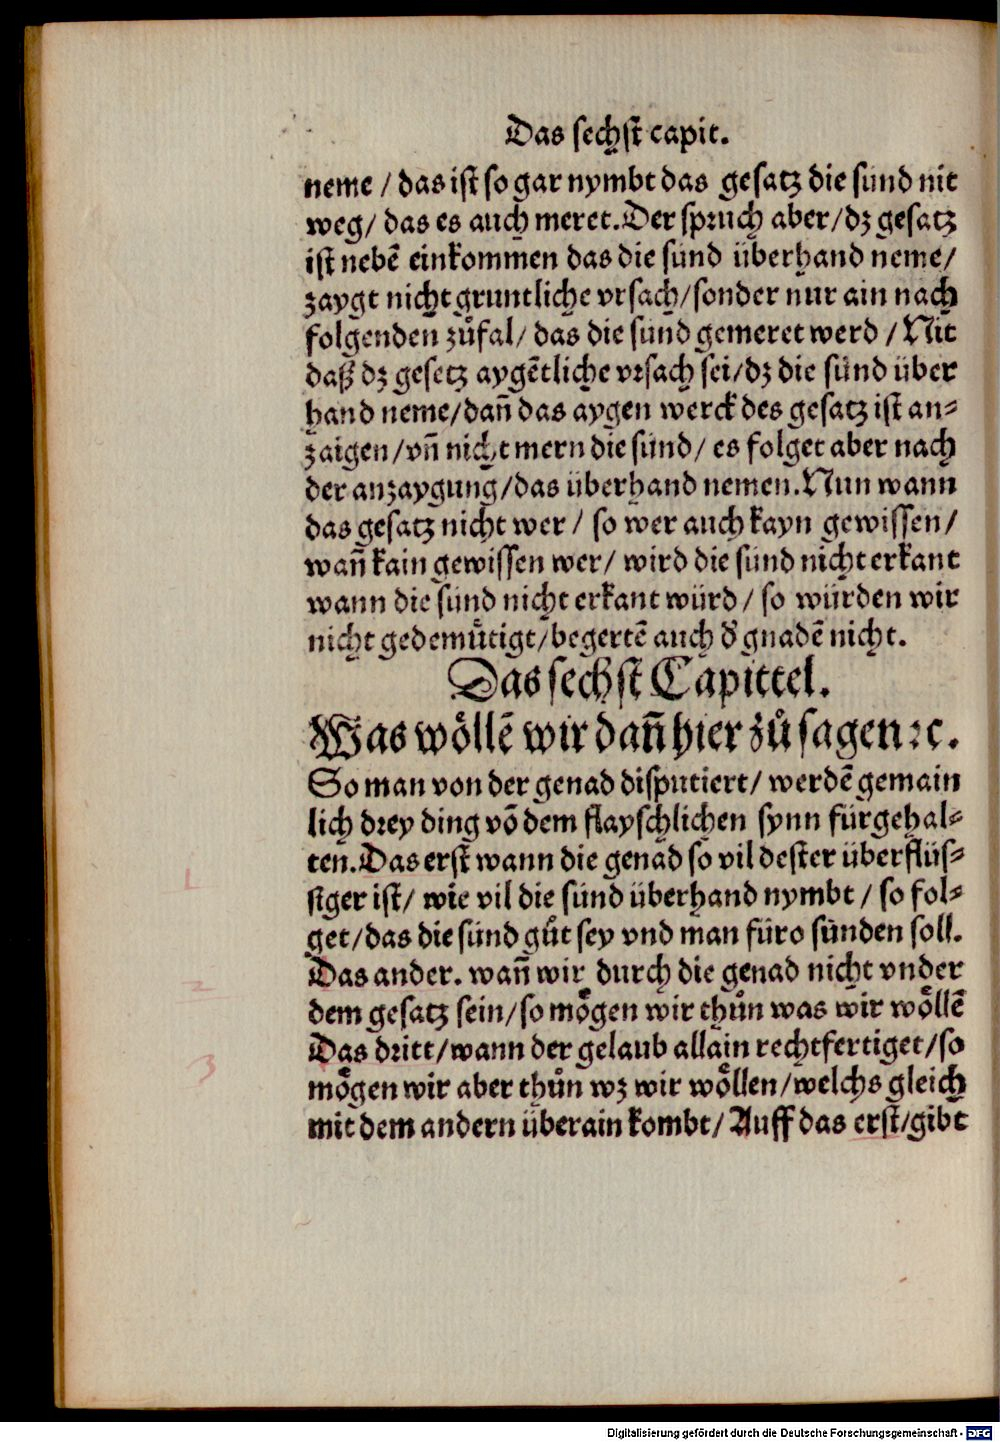 Das sechst capit.
neme / das ist so gar nymbt das gesatz die sünd nit
weg / das es auch meret. Der spruch aber / dz gesatz
ist nebē einkommen das die sünd überhand neme /
zaygt nicht gruntliche vrsach / sonder nur ain nach
folgenden zůfal / das die sünd gemeret werd / Nit
daß dz gesetz aygētliche vrsach sei / dz die sünd über
hand neme / dañ das aygen werck des gesatz ist an-
zaigen / vñ nicht mern die sünd / es folget aber nach
der anzaygung / das überhand nemen. Nun wann
das gesatz nicht wer / so wer auch kayn gewissen /
wañ kain gewissen wer / wird die sünd nicht erkant
wann die sünd nicht erkant würd / so würden wir
nicht gedemůtigt / begertē auch d̄ gnadē nicht.
Das sechst Capittel.
Was wöllē wir dañ hier zů sagen ꝛc.
So man von der genad disputiert / werdē gemain
lich drey ding vō dem flayschlichen synn fürgehal-
ten. Das erst wann die genad so vil dester überflüs-
siger ist / wie vil die sünd überhand nymbt / so fol-
get / das die sünd gůt sey vnd man füro sünden soll.
Das ander. wañ wir durch die genad nicht vnder
dem gesatz sein / so mögen wir thůn was wir wöllē
Das dritt / wann der gelaub allain rechtfertiget / so
mögen wir aber thůn wz wir wöllen / welchs gleich
mit dem andern überain kombt / Auff das erst / gibt
1
2
3
Digitalisierung gefördert durch die Deutsche Forschungsgemeinschaft - DFG